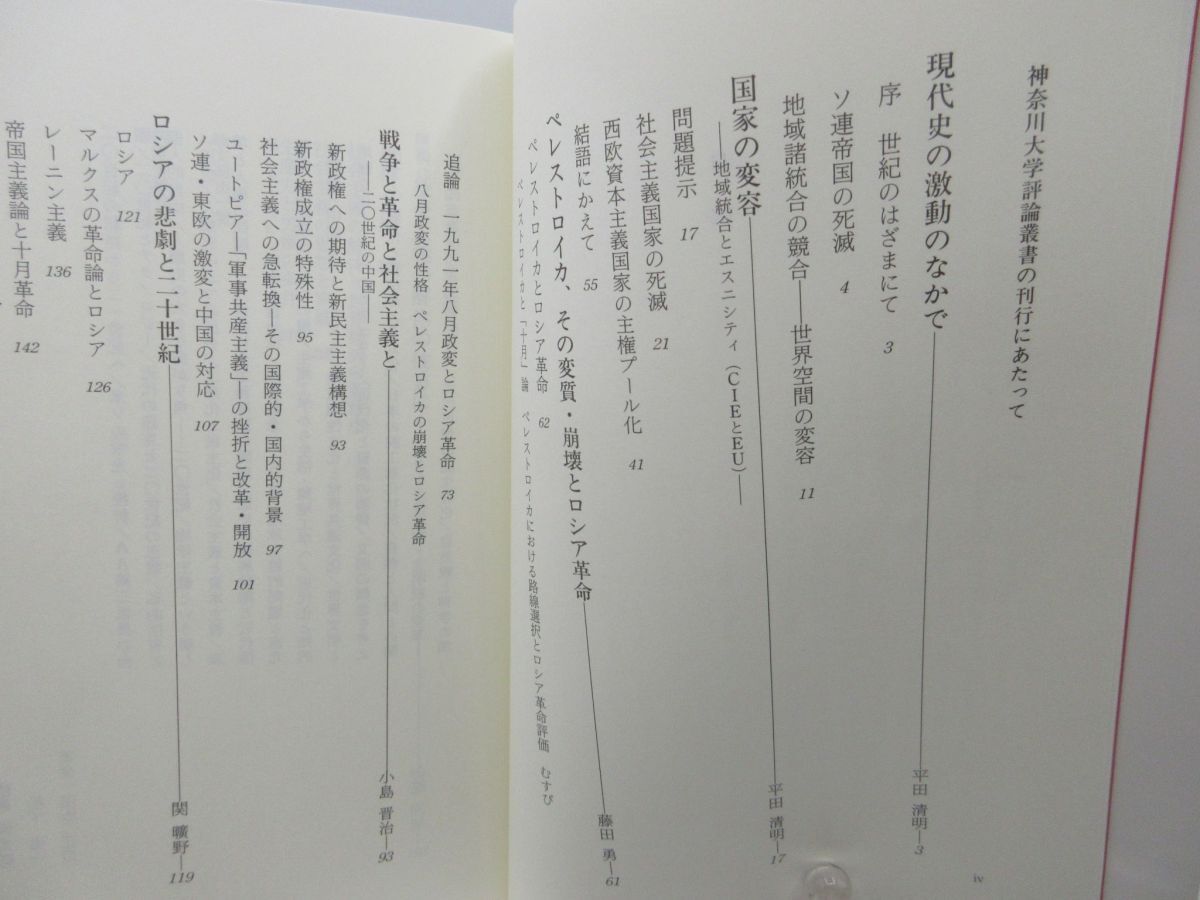 神奈川大学評論叢書の刊行にあたって
現代史の激動のなかで――平田 清明―3
序 世紀のはざまにて 3
ソ連帝国の死滅 4
地域諸統合の競合――世界空間の変容 11
国家の変容――平田 清明―17
――地域統合とエスニシティ(CIEとEU)――
問題提示 17
社会主義国家の死滅 21
西欧資本主義国家の主権プール化 41
結語にかえて 55
ペレストロイカ、その変質・崩壊とロシア革命――藤田 勇―61
ペレストロイカとロシア革命 62
ペレストロイカと「十月」論 ペレストロイカにおける路線選択とロシア革命評価 むすび
iv
追論 一九九一年八月政変とロシア革命 73
八月政変の性格 ペレストロイカの崩壊とロシア革命
戦争と革命と社会主義と――小島 晋治―93
――二〇世紀の中国――
新政権への期待と新民主主義構想 93
新政権成立の特殊性 95
社会主義への急転換―その国際的・国内的背景 97
ユートピア―「軍事共産主義」―の挫折と改革・開放 101
ソ連・東欧の激変と中国の対応 107
ロシアの悲劇と二十世紀――関 曠野―119
ロシア 121
マルクスの革命論とロシア 126
レーニン主義 136
帝国主義論と十月革命 142